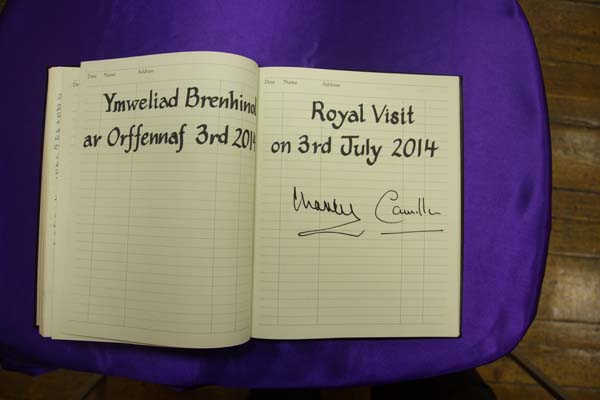 Date Name Address
Ymweliad Brenhinol
ar Orffennaf 3rd 2014
Date Name Address
Royal Visit
on 3rd July 2014
Charles Camilla